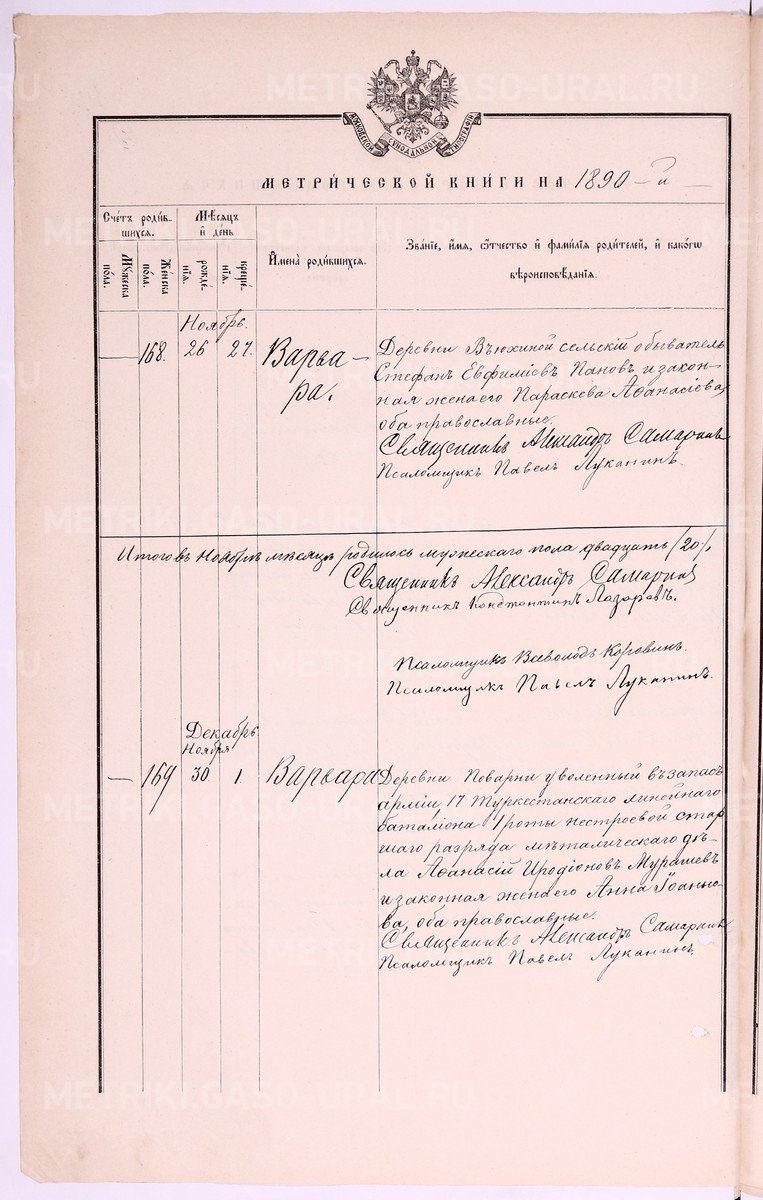 МОСКОВСКОЙ СѴНОДАЛЬНОЙ ТИПОГРАФІИ
МЕТРИ́ЧЕСКОЙ КНИ́ГИ НА 1890-й
Сче́тъ роди́в-
шихся.
Му́жеска
по́ла.
Же́нска
по́ла.
Мѣ́сяцъ
и҆ де́нь
рожде́-
нїѧ.
креще́-
нїѧ.
И҆мена̀ роди́вшихсѧ.
Зва́нїе, и҆́мѧ, ѻ҆́тчество и҆ фами́лїѧ роди́телей, и҆ како́гѡ
вѣроисповѣ́данїѧ.
Ноябрь.
— 168. 26 27. Варва-
ра.
Деревни Вьюхиной сельскій обыватель
Стефанъ Евфиміевъ Пановъ и закон-
ная жена его Параскева Аѳанасіева,
оба православные.
Священникъ Александръ Самаринъ
Псаломщикъ Павелъ Луканинъ.
Итого въ Ноябрѣ мѣсяцѣ родилось мужескаго пола двадцать /20/,
Священникъ Александръ Самаринъ
Священникъ Константинъ Лазаревъ.
Псаломщикъ Всеволодъ Коровинъ.
Псаломщикъ Павелъ Луканинъ.
Декабрь
Ноября
— 169 30 1. Варвара
Деревни Поварни уволенный въ запасъ
арміи, 17 Туркестанскаго линейнаго
баталіона 1 роты нестроевой стар
шаго разряда мѣталическаго дѣ-
ла Аѳанасій Иродіоновъ Мурашевъ
и законная жена его Анна Іоанно-
ва, оба православные.
Священникъ Александръ Самаринъ
Псаломщикъ Павелъ Луканинъ.
METRIKI.GASO-URAL.RU